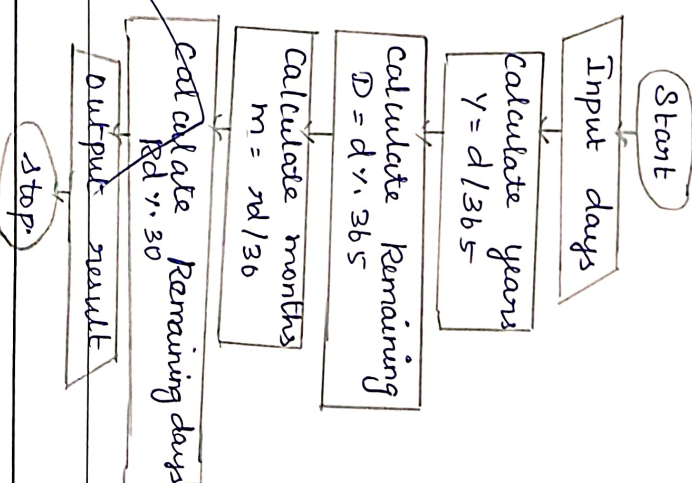 Start
Input days
Calculate years
Y = d/365
Calculate Remaining
D = d % 365
Calculate months
m = rd/30
Calculate Remaining days
Rd % 30
output result
stop.